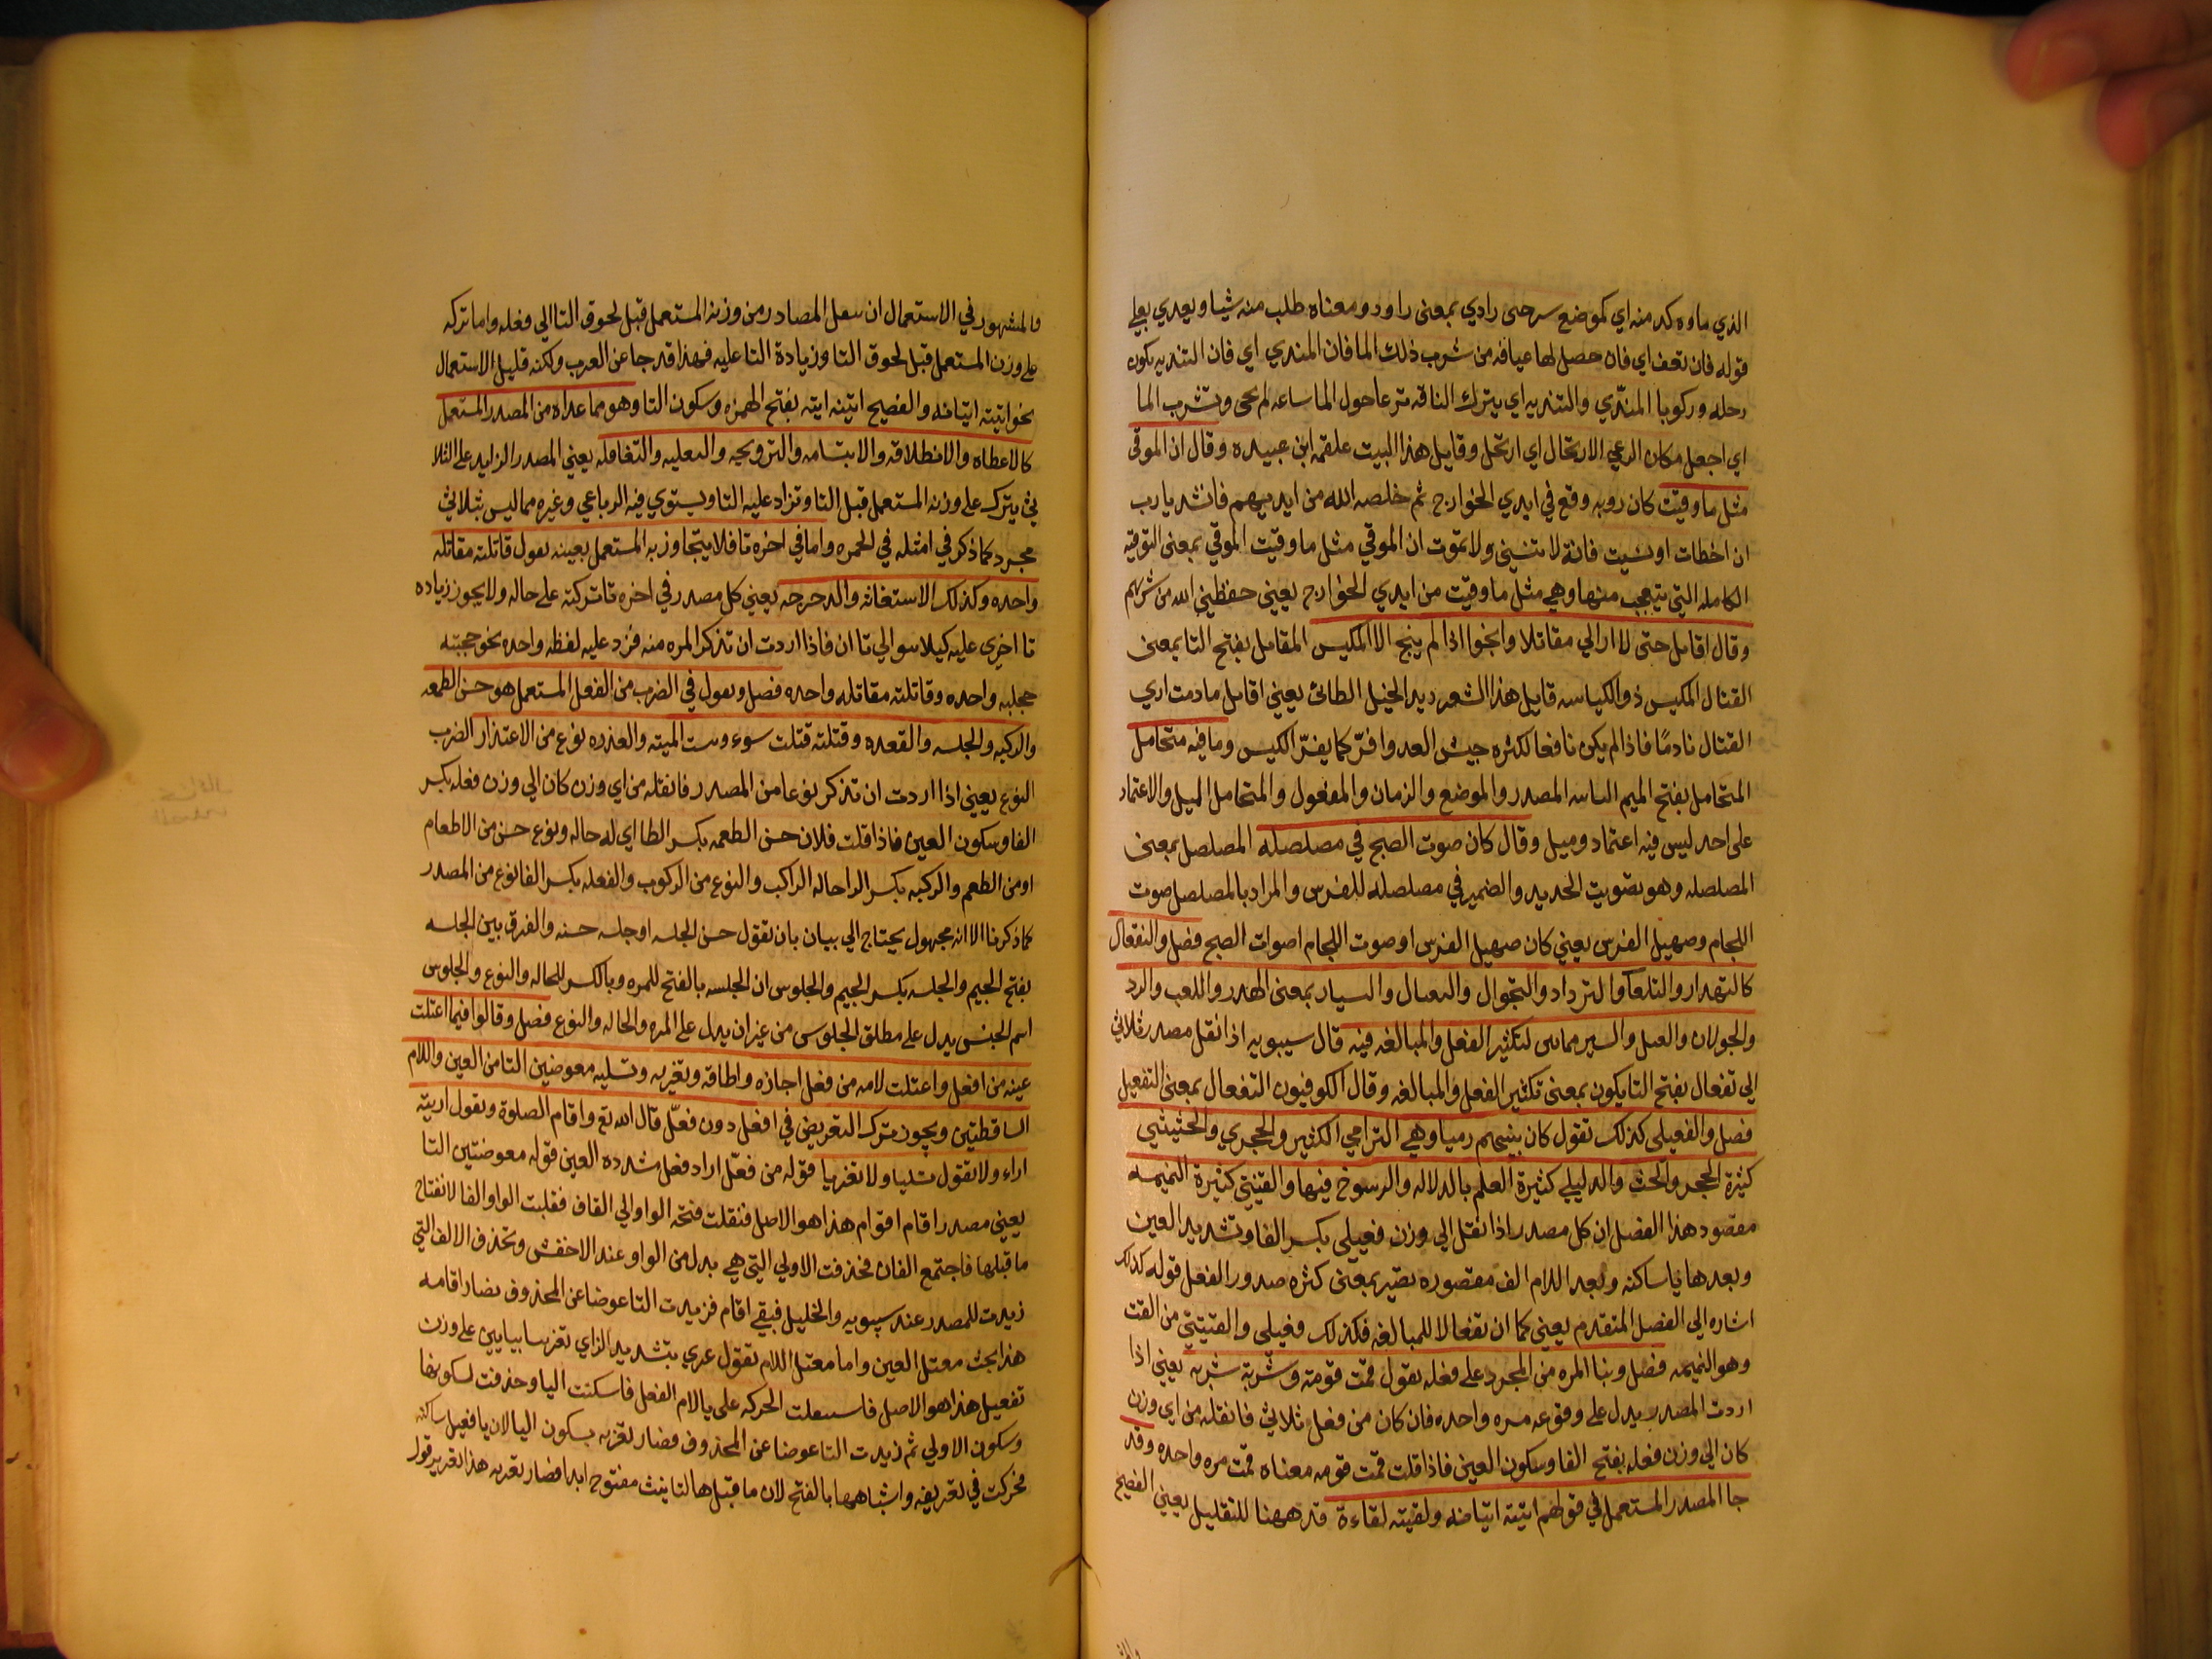 الذي ماوه كدر منه اي كموضع رادي بمعنى راود ومعناه طلب منه شيا ويعدي بعلي
قوله فان تعف اي فان حصل لها عيافه من شرب ذلك الما فان المندي اي فان التنديه يكون
رحله وركوبا المندّي والتنديه اي يترك الناقه ترعا حول الما ساعه ثم تجى وتشرب الما
اي اجعل مكان الرعي الارتحال اي ارتحل وقايل هذا البيت علقمه ابن عبيده وقال ان الموقى
مثل ما وقيت كان روبه وقع في ايدي الخوارج ثم خلصه الله من ايديهم فانشد يا رب
ان اخطات او نسيت فانت لا تنسي ولا تموت ان الموقي مثل ما وقيت الموقي بمعنى التوقيه
الكامله التي يتعجب منها وهي مثل ما وقيت من ايدي الخوارج يعني حفظني الله من شرهم
وقال اقاتل حتى لا اري لي مقاتلا وانجوا اذا لم ينج الا المكيس المقاتل بفتح التا بمعنى
القتال المكيس ذو الكياسه قايل هذا الشعر زيد الخيل الطائى يعني اقاتل ما دمت اري
القتال نادمًا فاذا لم يكن نافعا لكثره جيش العدو افرّ كما يفرّ الكيس وما فيه متحامل
المتحامل بفتح الميم المصدر والموضع والزمان والمفعول والمتحامل الميل والاعتماد
على احد ليس فيه اعتماد وميل وقال كان صوت الصبح في مصلصله المصلصل بمعنى
المصلصله وهو تصويت الحديد والضمير في مصلصله للفرس والمراد بالمصلصل صوت
اللجام وصهيل الفرس يعني كان صهيل الفرس او صوت اللجام اصوات الصبح فصل والتفعال
كالتهدار والتلعاب والترداد والتجوال والتقتال والتسيار بمعنى الهدر واللعب والرد
والجولان والقتل والسير مما بنى لتكثير الفعل والمبالغه فيه قال سيبويه اذا نقل مصدر ثلاثي
الي تفعال بفتح التا يكون بمعنى تكثير الفعل والمبالغه وقال الكوفيون التفعال بمعنى التفعيل
فصل والفعيلى كذلك تقول كان بينهم رميا وهي الترامي الكثير والحجيزي والحثيثي
كثيرة الحجز والحث والدليلي كثيرة العلم بالدلاله والرسوخ فيها والقتيتي كثيرة النميمه
مقصود هذا الفصل ان كل مصدر اذا نقل الي وزن فعيلى بكسر الفا وتشديد العين
وبعدها يا ساكنه وبعد اللام الف مقصوره يصير بمعنى كثره صدور الفعل قوله كذلك
اشاره الي الفصل المتقدم يعني كما ان تفعالا للمبالغه فكذلك فعيلى والقتيتي من القت
وهو النميمه فصل وبنا المره من المجرد على فعله تقول قمت قومة وشربة شربه يعني اذا
اردت المصدر يدل على وقوعه مره واحده فان كان من فعل ثلاثي فانقله من اي وزن
كان الي وزن فعله بفتح الفا وسكون العين فاذا قلت قمت قومه معناه قمت مره واحده وقد
جا المصدر المستعمل في قولهم اتيته اتيانه ولقيته لقاءة قد ههنا للتقليل يعني الفصيح
والمشهور في الاستعمال ان المصادر من وزنه المستعمل قبل لحوق التا الي فعله واما تركه
على وزن المستعمل قبل لحوق التا وزيادة التا عليه فهذا قد جا عن العرب ولكنه قليل الاستعمال
نحو اتيته اتيانه والفصيح اتيته اتيه بفتح الهمزه وسكون التا وهو مما عداه من المصدر المستعمل
كالاعطاه والانطلاقه والابتسامه والترويحه والتغافله يعني المصدر الزايد على الثلا
ثي يترك على وزنه المستعمل قبل التا وتزاد عليه التا ويستوي فيه الرباعي وغيره مما ليس بثلاثي
مجرد كما ذكر في امثله في الحمره واما في اخره تا فلا يتجاوز به المستعمل بعينه تقول قاتلته مقاتله
واحده وكذلك الاستغاثه والدحرجه يعني كل مصدر في اخره تا تركته على حاله ولا يجوز زياده
تا اخرى عليه كيلا يتوالي تا ان فاذا اردت ان تذكر المره منه فزد عليه لفظه واحده نحو
واحده وقاتلته مقاتله واحده فصل وتقول في الضرب من الفعل المستعمل هو حسن الطعمه
والركبه والجلسه والقعده وقتلته قتلت سوء وبيست الميته والعذره نوع من الاعتذار الضرب
النوع يعيني اذا اردت ان تذكر نوعا من المصدر فانقله من اي وزن كان الي وزن فعله بكسر
الفا وسكون العين فاذا قلت فلان حسن الطعمه بكسر الطا اي له حاله ونوع حسن من الاطعام
او من الطعم والركبه بكسر الرا حاله الراكب والنوع من الركوب والفعله بكسر الفا نوع من المصدر
كما ذكرنا الا انه مجهول يحتاج الي بيان بان تقول حسن الجلسه او جلسه حسنه والفرق بين الجلسه
بفتح الجيم والجلسه بكسر الجيم والجلوس ان الجلسه بالفتح للمره وبالكسر للحاله والنوع والجلوس
اسم الجنس يدل على مطلق الجلوس من غير ان يدل على المره والحاله والنوع فصل وقالوا فيما اعتلت
عينه من افعل واعتلت لامه من فعل اجازه واطاقه وتعزيه وتسليه معوضين التا من العين واللام
الساقطتين ويجوز ترك التعويض في افعل دون فعّل قال الله تع واقام الصلوة وتقول اريته
اراء ولا تقول تسليا ولا تعزيا قوله من فعّل اراد فعل مشدده العين قوله معوضتين التا
يعيني مصدر اقام اقوام هذا هو الاصل فنقلت فتحة الواو الي القاف فقلبت الواو الفا لانفتاح
ما قبلها فاجتمع الفان فحذفت الاولي التي هي بدل من الواو عند الاخفش وتحذف الالف التي
زيدت للمصدر عند سيبويه والخليل فبقي اقام فزيدت التا عوضا عن المحذوف فصار اقامه
هذا بحث معتل العين واما معتل اللام تقول عزي بتشديد الزاي تعزييا بيايين على وزن
تفعيل هذا هو الاصل فاستثقلت الحركه على يا لام الفعل فاسكنت اليا وحذفت لسكونها
وسكون الاولي ثم زيدت التا عوضا عن المحذوف فصار تعزيه بسكون اليا لان يا فعيل ساكنه
فحركت في تعزيه واشباهها بالفتح لان ما قبل ها التانيث مفتوح ابدا فصار تعزيه هذا تقدير قول